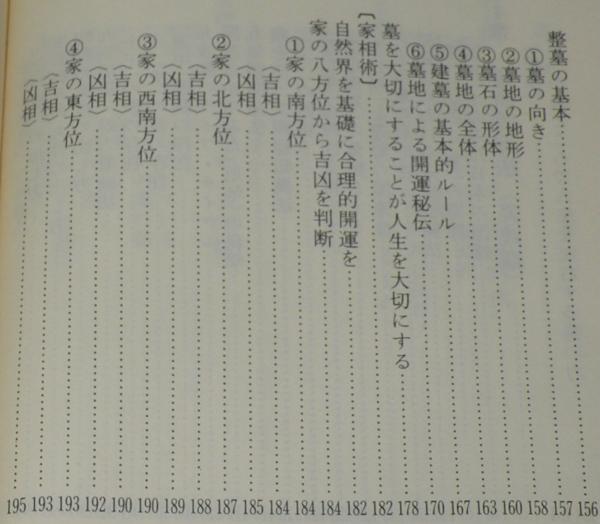 整墓の基本……156
①墓の向き……157
②墓地の地形……158
③墓石の形体……160
④墓地の全体……163
⑤建墓の基本的ルール……167
⑥墓地による開運秘伝……170
墓を大切にすることが人生を大切にする……178
〔家相術〕……182
自然界を基礎に合理的開運を……182
家の八方位から吉凶を判断……184
①家の南方位……184
〈吉相〉……184
〈凶相〉……185
②家の北方位……187
〈吉相〉……188
〈凶相〉……189
③家の西南方位……190
〈吉相〉……190
〈凶相〉……192
④家の東方位……193
〈吉相〉……193
〈凶相〉……195